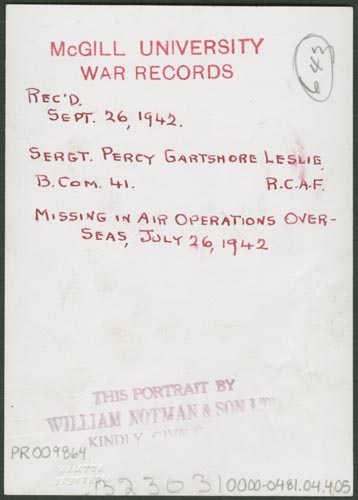 McGILL UNIVERSITY
WAR RECORDS
643
REC'D.
SEPT. 26, 1942.
SERGT. PERCY GARTSHORE LESLIE
B. COM. 41. R.C.A.F.
MISSING IN AIR OPERATIONS OVER-
SEAS, JULY 26, 1942
THIS PORTRAIT BY
WILLIAM NOTMAN & SON LTD
KINDLY GIVE
PR009864
0000-0481.04.405